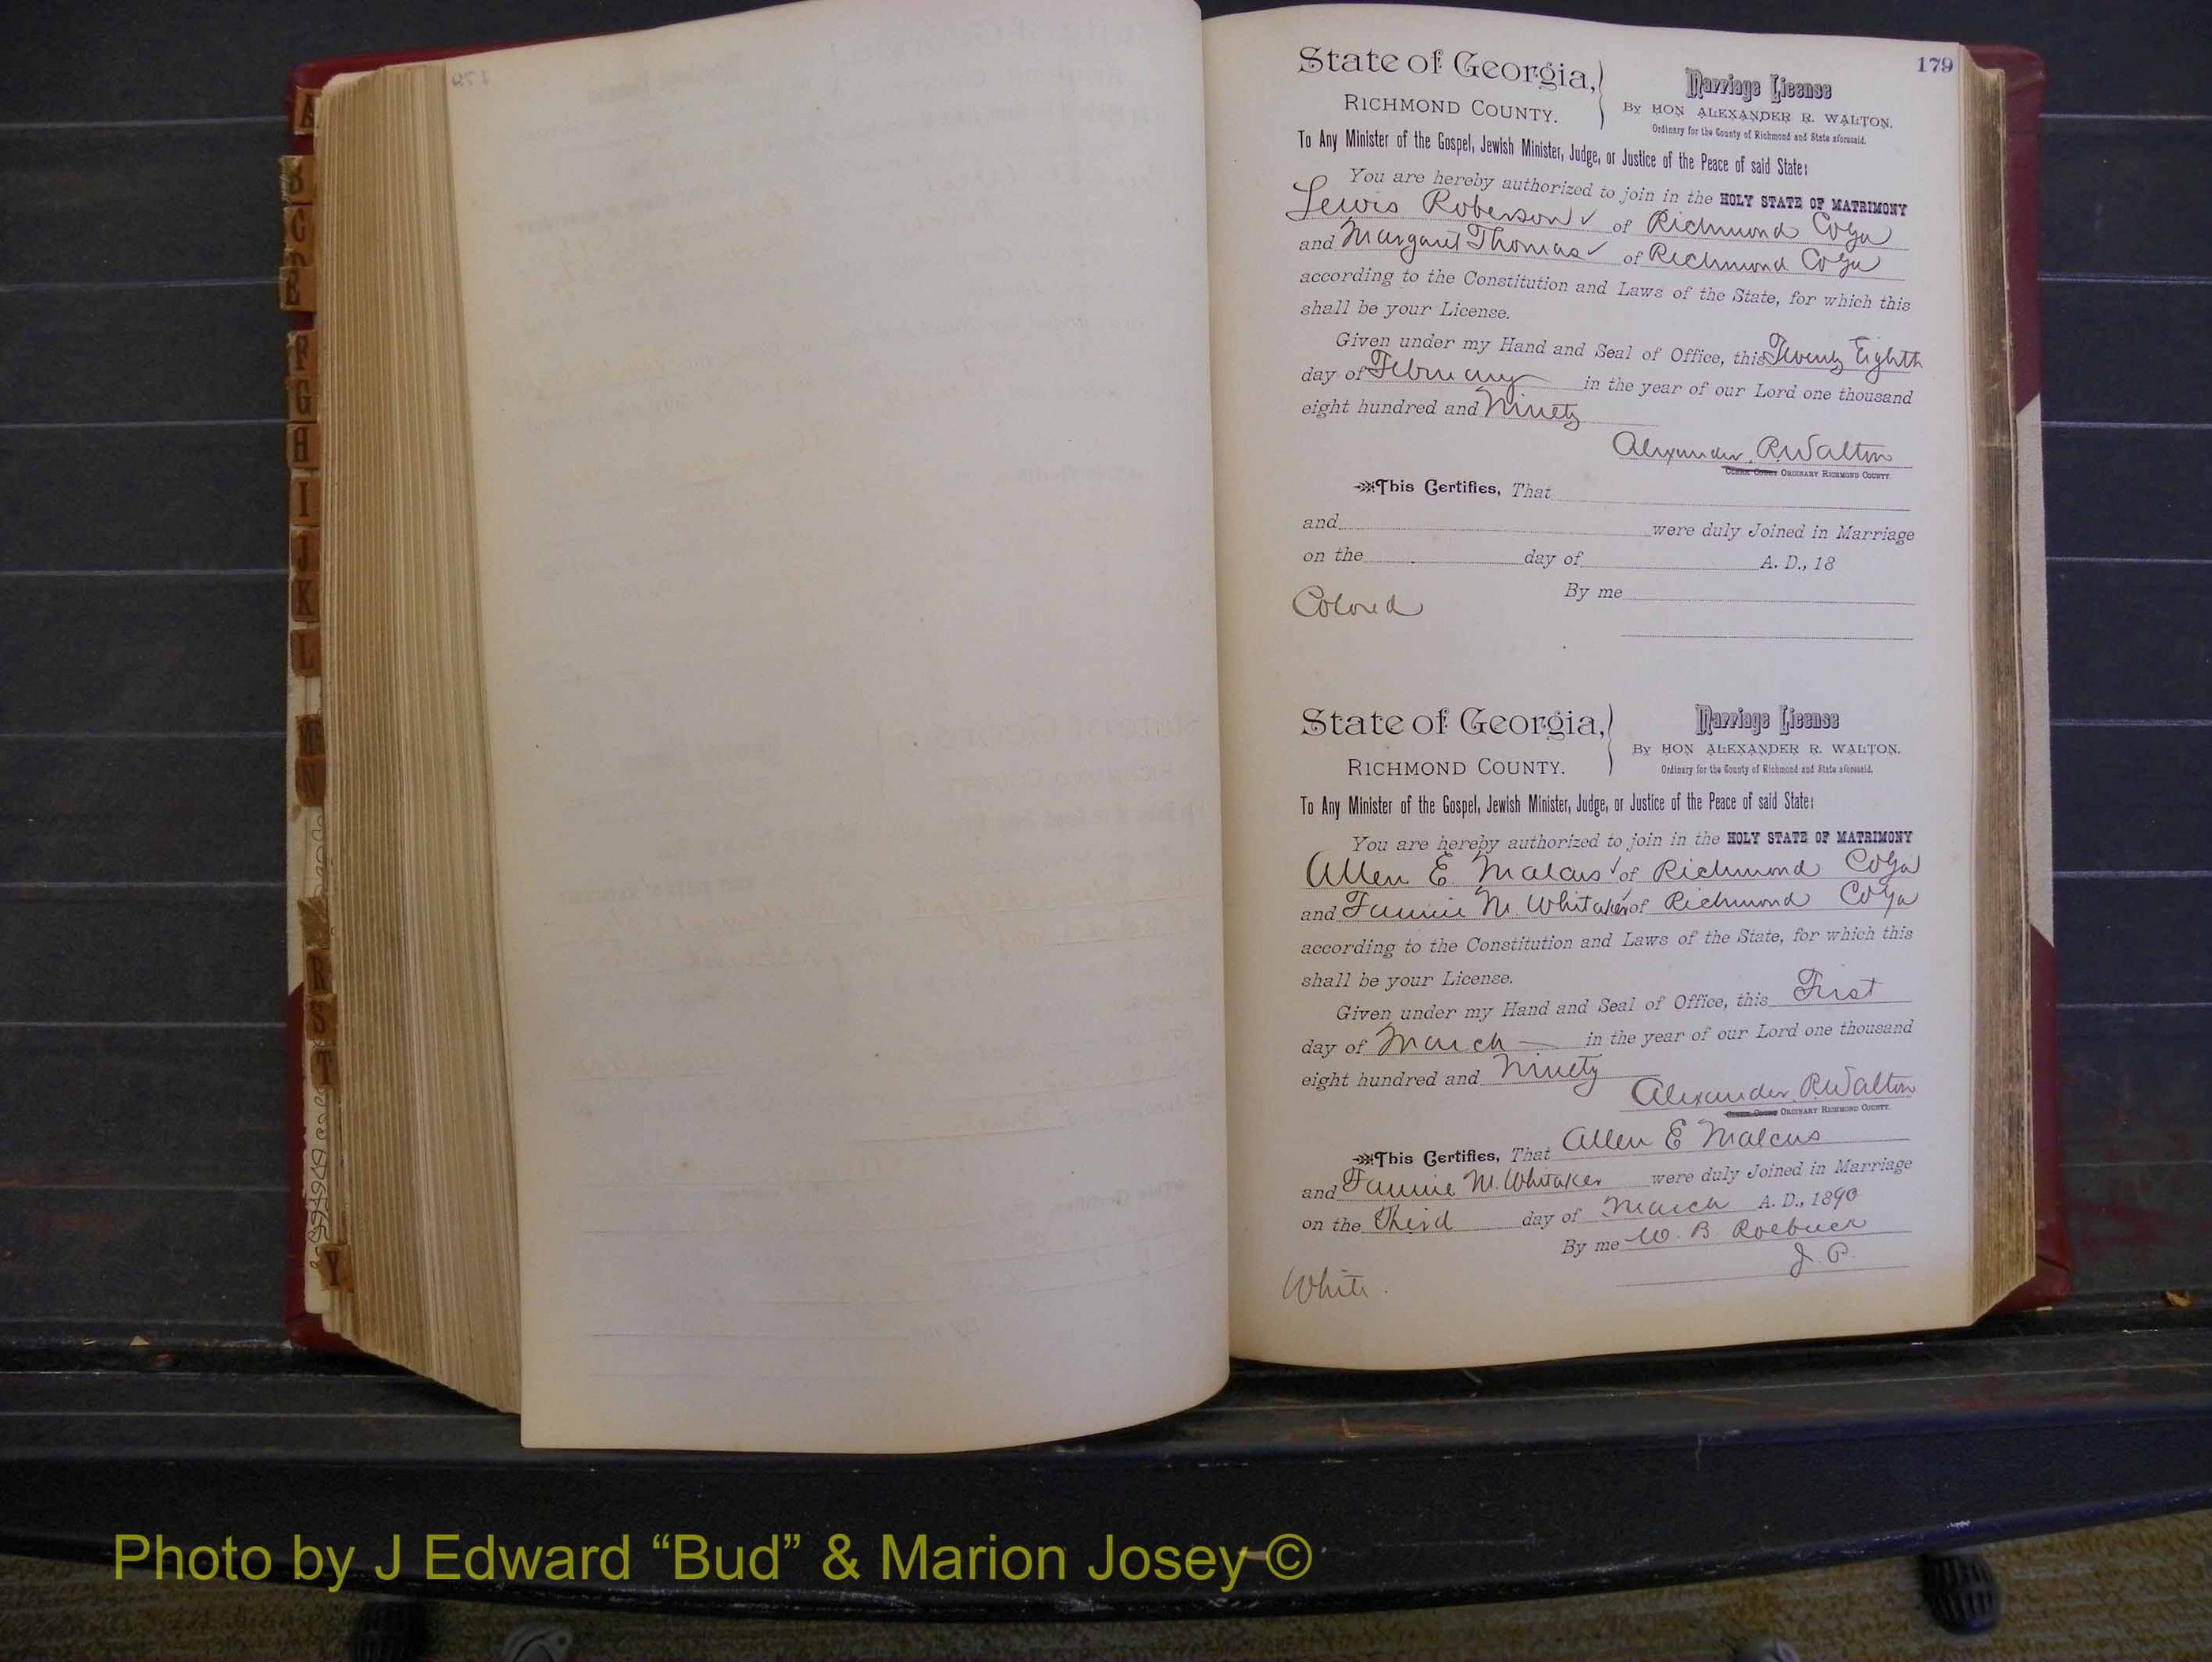 179
State of Georgia,
RICHMOND COUNTY.
Marriage License
By HON ALEXANDER R. WALTON.
Ordinary for the County of Richmond and State aforesaid.
To Any Minister of the Gospel, Jewish Minister, Judge, or Justice of the Peace of said State:
You are hereby authorized to join in the HOLY STATE OF MATRIMONY
Lewis Roberson ✓ of Richmond Co Ga
and Margaret Thomas ✓ of Richmond Co Ga
according to the Constitution and Laws of the State, for which this
shall be your License.
Given under my Hand and Seal of Office, this Twenty Eighth
day of February in the year of our Lord one thousand
eight hundred and Ninety
Alexander. R. Walton
ORDINARY RICHMOND COUNTY.
This Certifies, That
and were duly Joined in Marriage
on the day of A. D., 18
By me
Colored
State of Georgia,
RICHMOND COUNTY.
Marriage License
By HON ALEXANDER R. WALTON.
Ordinary for the County of Richmond and State aforesaid.
To Any Minister of the Gospel, Jewish Minister, Judge, or Justice of the Peace of said State:
You are hereby authorized to join in the HOLY STATE OF MATRIMONY
Allen E. Malcus ✓ of Richmond Co Ga
and Fannie M. Whitaker ✓ of Richmond Co Ga
according to the Constitution and Laws of the State, for which this
shall be your License.
Given under my Hand and Seal of Office, this First
day of March in the year of our Lord one thousand
eight hundred and Ninety
Alexander. R. Walton
ORDINARY RICHMOND COUNTY.
This Certifies, That Allen E Malcus
and Fannie M. Whitaker were duly Joined in Marriage
on the Third day of March A. D., 1890
By me W. B. Roebuck
J. P.
White.
A
B
C
E
F
G
H
I
J
K
L
M
N
R
S
T
Y
Photo by J Edward “Bud” & Marion Josey ©